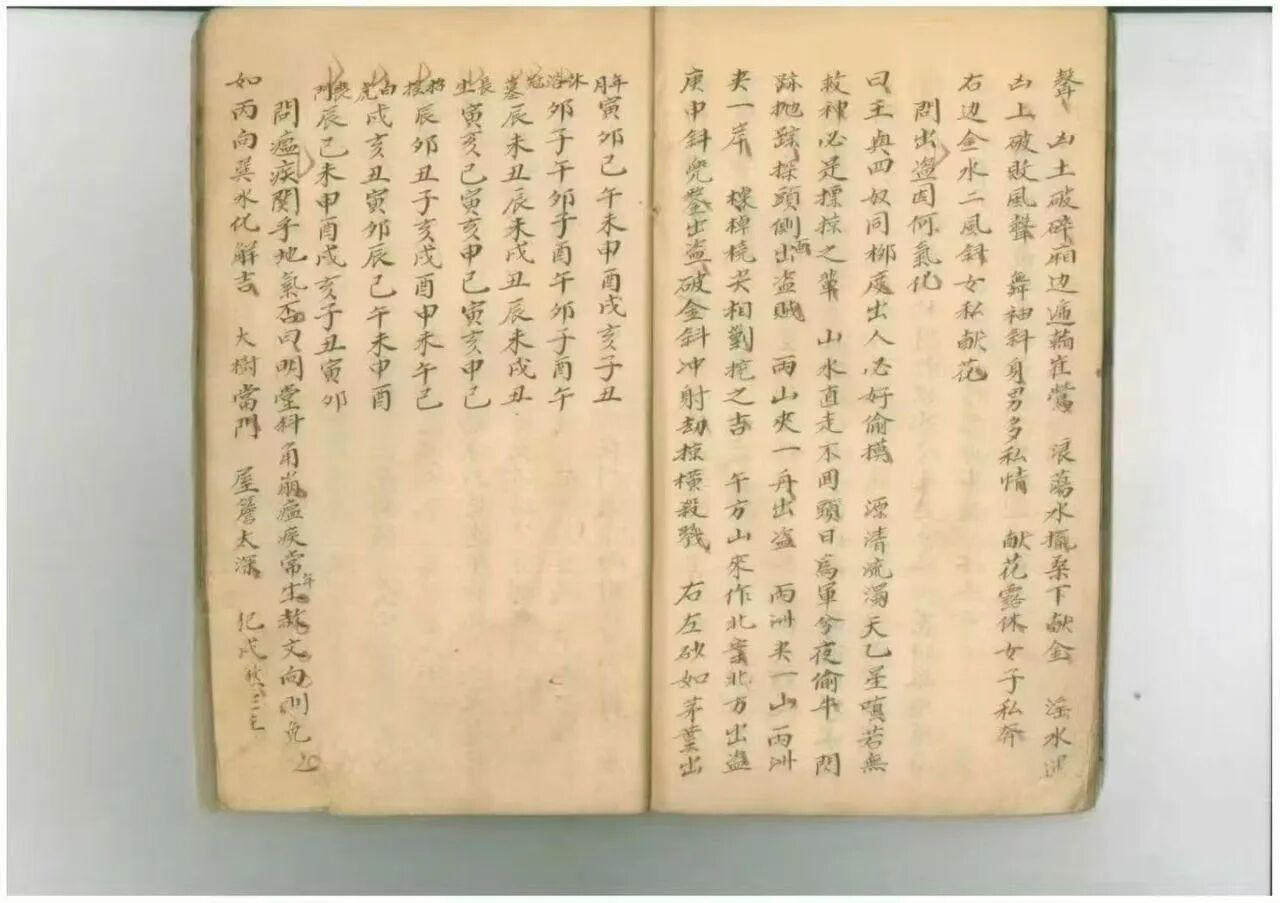 聲　凶土破碎廂边遁藕崔鶯　浪蕩水撫桑下献金　滛水
凶上破敗風聲　舞袖斜身男多私情　献花露体女子私奔
右边金水二風録女私献花
問出盗因何氣化
曰王與四奴同柳處出人必好偷摸　漂清流濁天乙星嗔若無
救神必是摽掠之輩　山水直走不囬頭日為軍兮夜偷牛　閃
跡抛踪探頭側西出盗賊　两山夾一舟出盗　两洲夹一山两洲
夹一岸　榇棹橈尖相對挖之吉　午方山來作北案北方出盗
庚申斜兠鑒出盗破金斜冲射劫掠橫殺戮　右左砂如茅葉出
年月　寅卯巳午未申酉戌亥子丑
沐浴　卯子午卯子酉午卯子酉午
冠墓　辰未丑辰未戌丑辰未戌丑
長生　寅亥巳寅亥申巳寅亥申巳
辰卯丑子亥戌酉申未午巳
白虎　戌亥丑寅卯辰巳午未申酉
喪門　辰巳未申酉戌亥子丑寅卯
問瘟疾関乎地氣否曰明堂科角崩瘟疾常年生赦文向則免
如丙向巽水化解吉　大樹當門　屋簷太深　犯戌